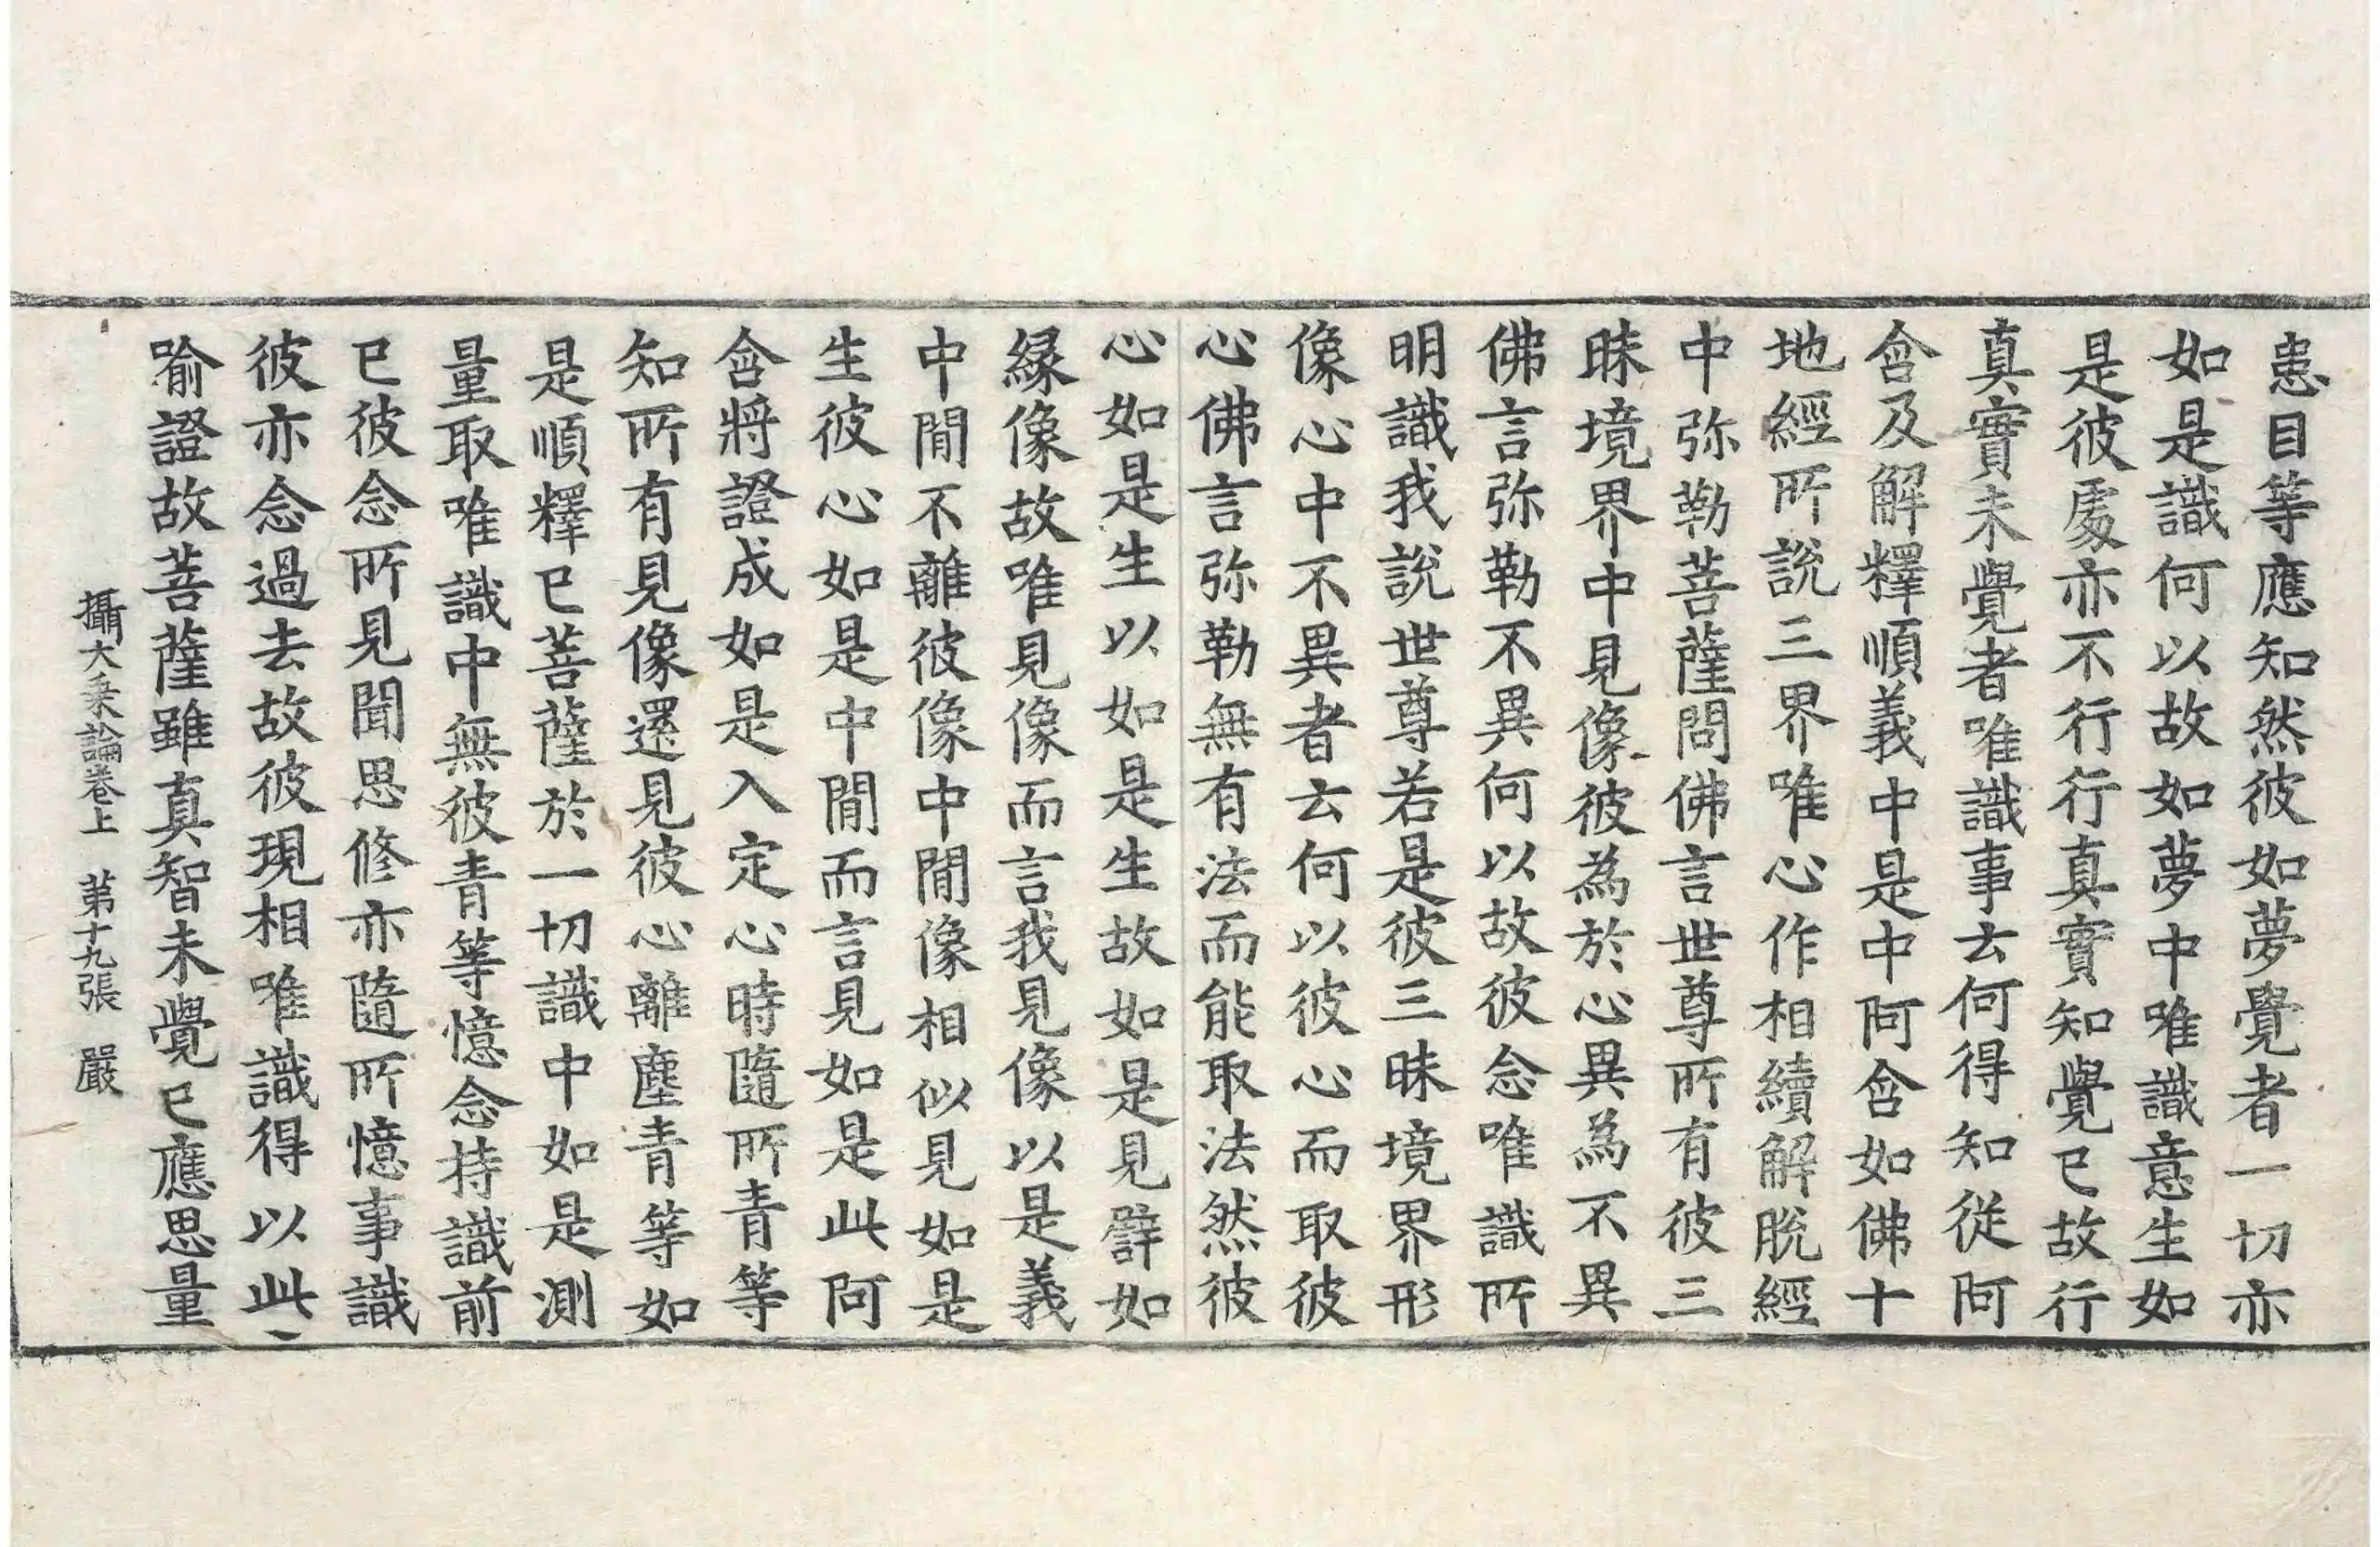 患目等應知然彼如夢覺者一切亦
如是識何以故如夢中唯識意生如
是彼處亦不行行真實知覺已故行
真實未覺者唯識事去何得知從阿
含及解釋順義中是中阿含如佛十
地經所説三界唯心作相續解脫經
中弥勒菩薩問佛言世尊所有彼三
昧境界中見像彼為於心異為不異
佛言弥勒不異何以故彼念唯識所
明識我説世尊若是彼三昧境界形
像心中不異者云何以彼心而取彼
心佛言弥勒無有法而能取法然彼
心如是生以如是生故如是見譬如
緣像故唯見像而言我見像以是義
中閒不離彼像中閒像相似見如是
生彼心如是中閒而言見如是此阿
含將證成如是入定心時隨所青等
知所有見像還見彼心離塵青等如
是順釋已菩薩於一切識中如是測
量取唯識中無彼青等憶念持識前
已彼念所見聞思修亦隨所憶事識
彼亦念過去故彼現相唯識得以此
喻證故菩薩雖真智未覺已應思量
攝大乗論卷上 第十九張 嚴